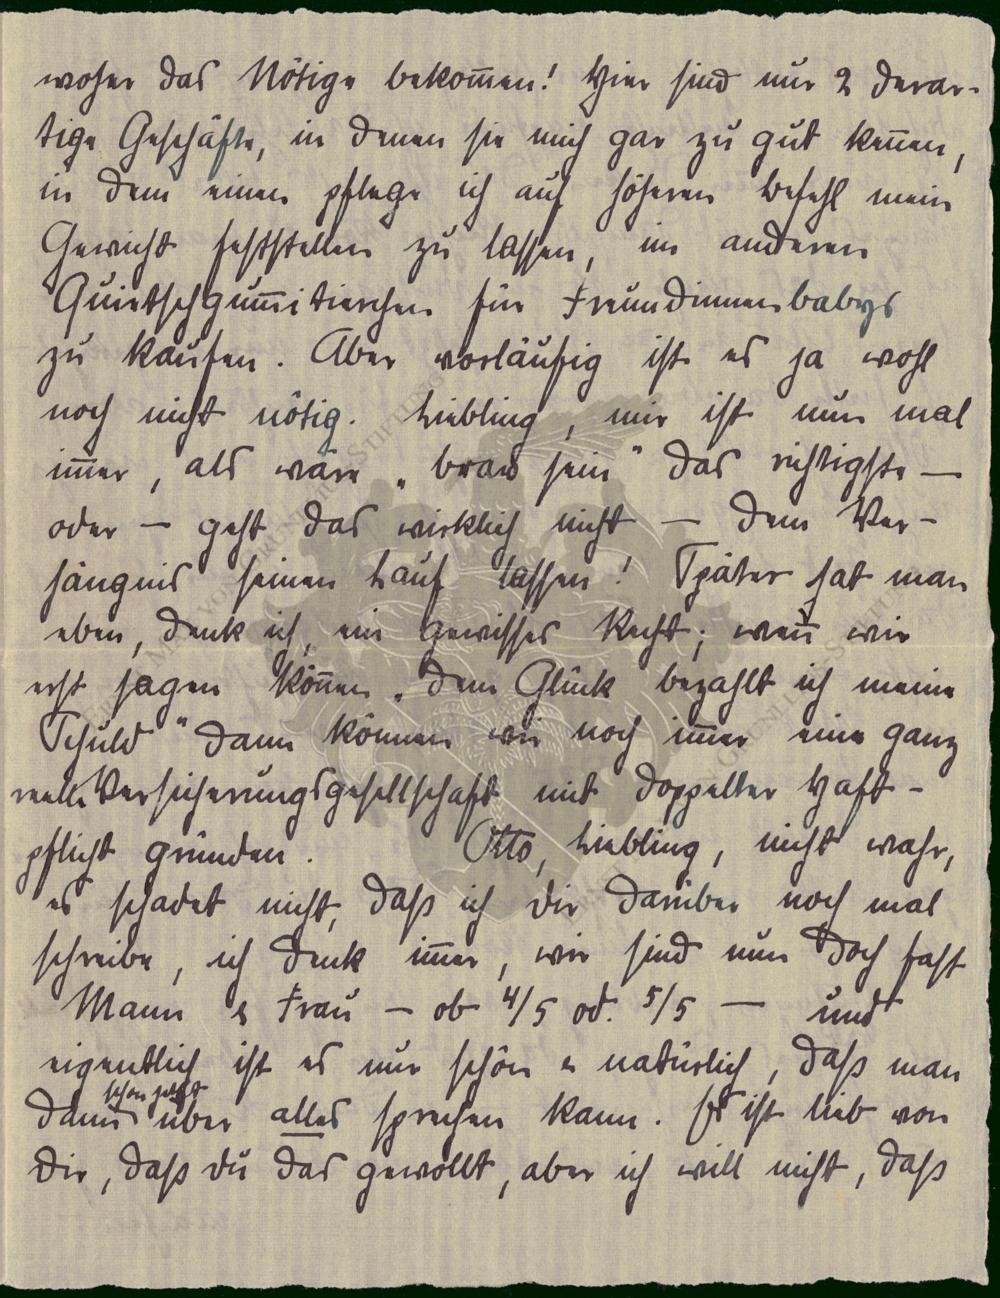 woher das Nötige bekom̅en! Hier sind nur 2 derar-
tige Geschäfte, in denen sie mich gar zu gut ken̅en,
in dem einen pflege ich auf höheren Befehl mein
Gewicht feststellen zu lassen, im anderen
Quietschgum̅itierchen für Freundinnenbabys
zu kaufen. Aber vorläufig ist es ja wohl
noch nicht nötig. Liebling, mir ist nun mal
im̅er, als wäre „brav sein" das richtigste —
oder — geht das wirklich nicht — dem Ver-
hängnis seinen Lauf lassen! Später hat man
eben, denk ich, ein gewisses Recht; wen̅ wir
erst sagen kön̅en „dem Glück bezahlt ich meine
Schuld" dann können wir noch im̅er eine ganz
reelle Versicherungsgesellschaft mit doppelter Haft-
pflicht gründen. Otto, Liebling, nicht wahr,
es schadet nicht, daß ich dir darüber noch mal
schreibe, ich denk im̅er, wir sind nun doch fast
Mann & Frau — ob 4/5 od. 5/5 — und
eigentlich ist es nur schön & natürlich, daß man
schon jetzt
dann über alles sprechen kann. Es ist lieb von
dir, daß du das gewollt, aber ich will nicht, daß